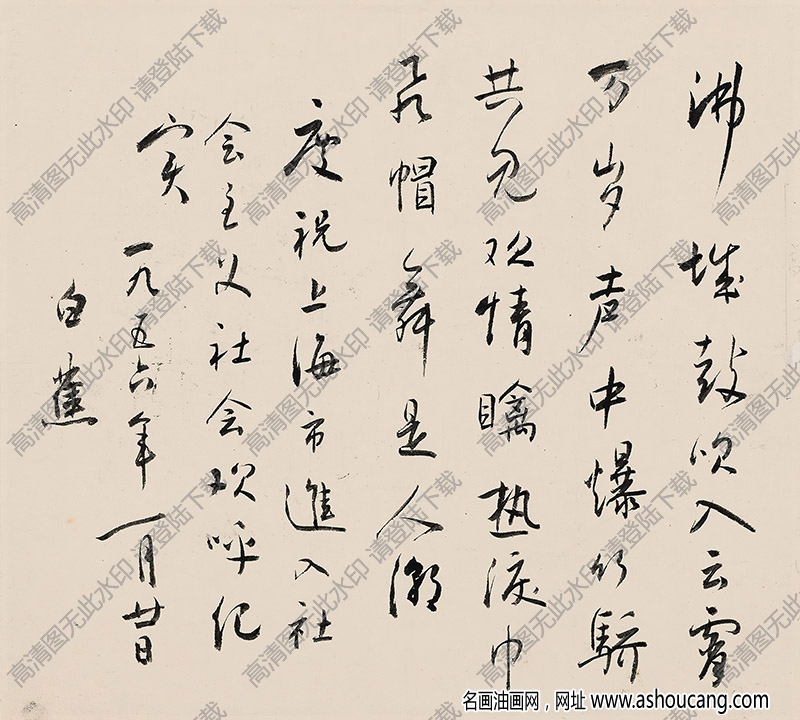 沸城鼓吹入云霄
万岁声中爆竹骄
共见欢情热淚巾
飞帽舞是人潮
庆祝上海市進入社
会主义社会欢呼纪
实 一九五六年一月廿日
白蕉
高清图无此水印 请登陆下载
名画油画网，网址 www.ashoucang.com